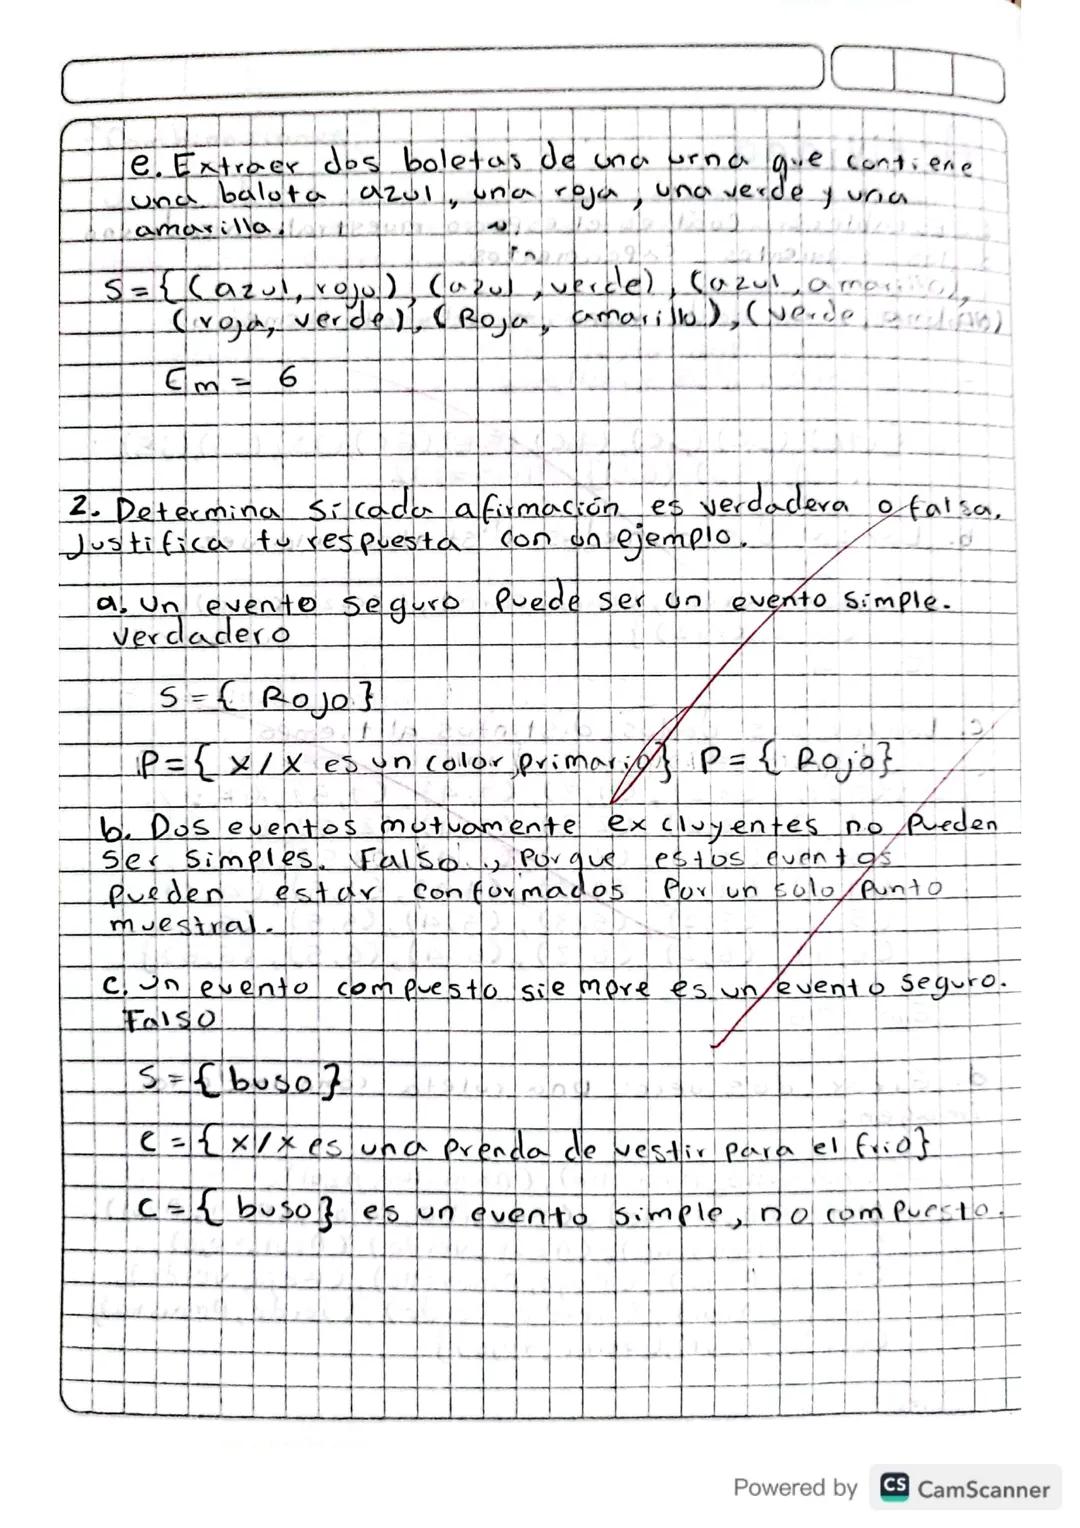 e. Extraer dos boletas de una urna que contiene
una balota azul, una roja, una verde y una
amarilla.
S={(azul, rojo), (azul, verde), (azul, amarilla),
(roja, verde), (Roja, amarilla), (verde, amarilla)
Em = 6
2. Determina si cada afirmación es verdadera o falsa.
Justifica tu respuesta con un ejemplo.
a. Un evento seguro puede ser un evento simple.
verdadero
S={ Rojo}
P={ x/x es un color primario} P={ Rojo}
b. Dos eventos mutuamente excluyentes no pueden
ser simples. Falso., Porque estos eventos
pueden estar conformados por un solo punto
muestral.
c. Un evento compuesto siempre es un evento seguro.
Falso
S={buso}
C={x/x es una prenda de vestir para el frio}
C={buso} es un evento simple, no compuesto.
Powered by CS CamScanner